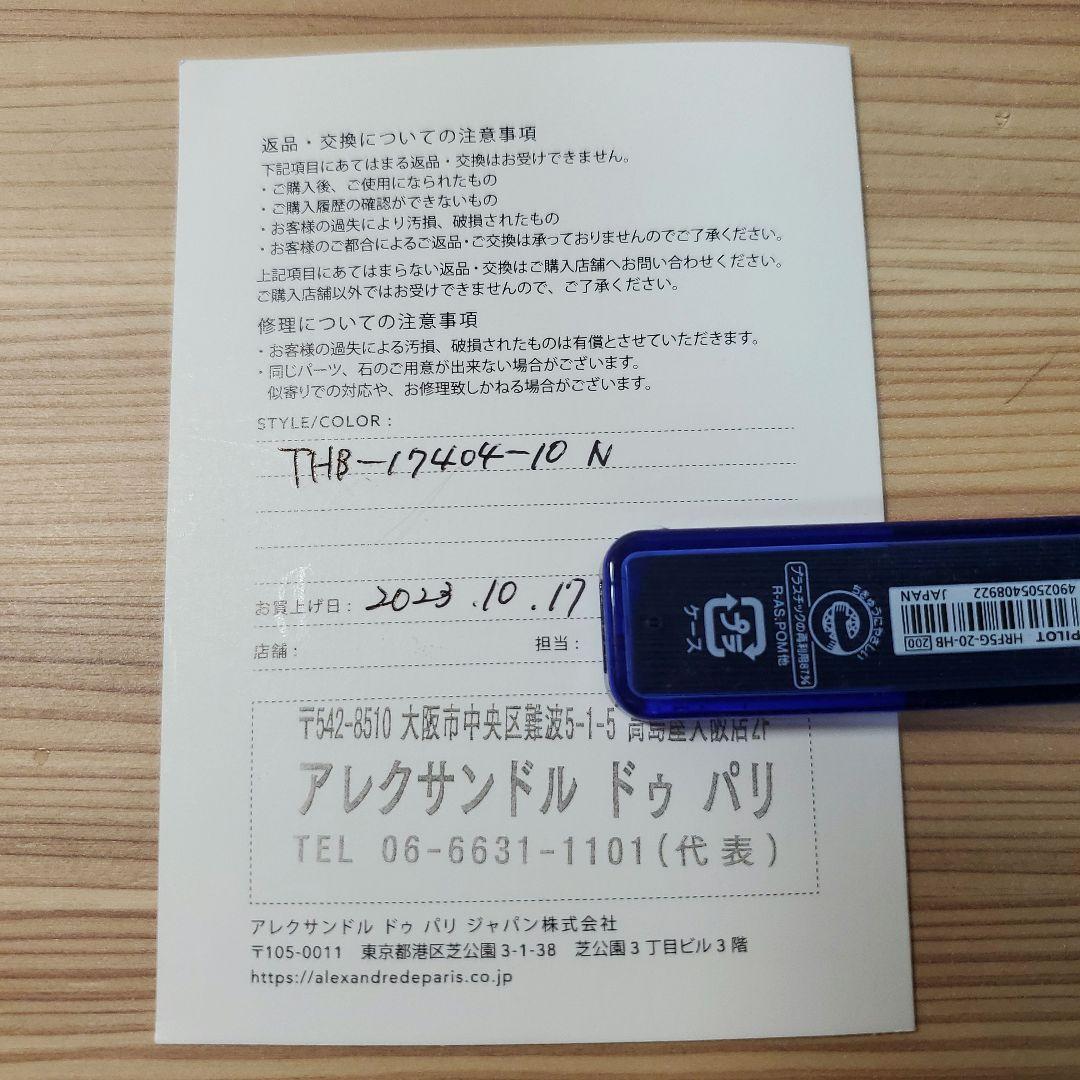 返品・交換についての注意事項
下記項目にあてはまる返品・交換はお受けできません。
・ご購入後、ご使用になられたもの
・ご購入履歴の確認ができないもの
・お客様の過失により汚損、破損されたもの
・お客様のご都合によるご返品・ご交換は承っておりませんのでご了承ください。
上記項目にあてはまらない返品・交換はご購入店舗へお問い合わせください。
ご購入店舗以外ではお受けできませんので、ご了承ください。
修理についての注意事項
・お客様の過失による汚損、破損されたものは有償とさせていただきます。
・同じパーツ、石のご用意が出来ない場合がございます。
似寄りでの対応や、お修理致しかねる場合がございます。
STYLE/COLOR :
THB-17404-10 N
お買上げ日: 2023.10.17
店舗: 担当:
〒542-8510 大阪市中央区難波5-1-5 高島屋大阪店2F
アレクサンドル ドゥ パリ
TEL 06-6631-1101(代表)
アレクサンドル ドゥ パリ ジャパン株式会社
〒105-0011 東京都港区芝公園3-1-38 芝公園3丁目ビル3階
https://alexandredeparis.co.jp
プラ
ケース
プラスチックの再利用87%
R-AS:POM他
ちきゅうにやさしい
4902505408922
JAPAN
PILOT HRF5G-20-HB 200